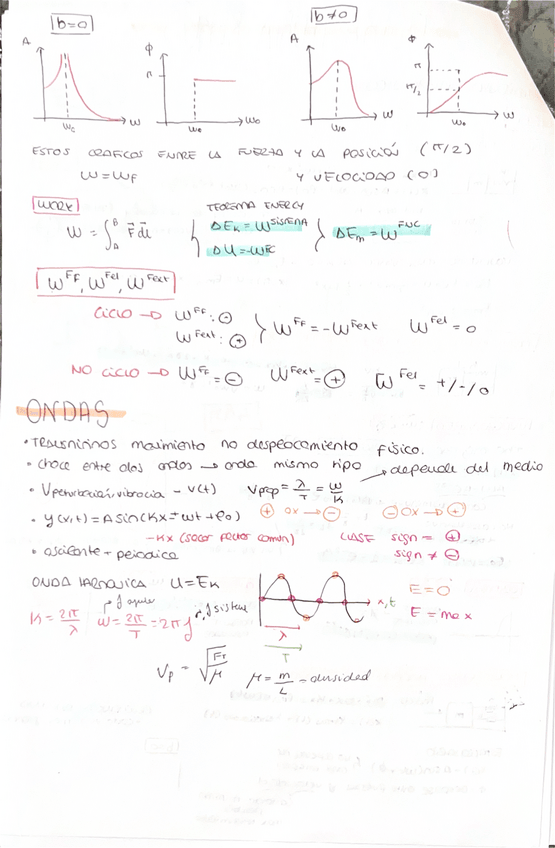 b=0
b≠0
A
ϕ
A
ϕ
π
π
π/2
ω
ω₀
ω₀
ω
ω₀
ω
ω₀
ESTOS GRAFICOS ENTRE LA FUERZA Y LA POSICIÓN (π/2)
ω=ωF Y VELOCIDAD (0)
WORK
TEOREMA ENERGY
W = ∫_A^B F⃗ dl⃗
ΔEk = W^SISTEMA
ΔU = -W^FC
ΔEm = W^FNC
W^Ff, W^Fel, W^Fext
CICLO → W^Ff: ⊖
W^Fext: ⊕
W^Ff = -W^Fext W^Fel = 0
NO CICLO → W^Ff = ⊖ W^Fext = ⊕ W^Fel = +/-/0
ONDAS
• TRANSMITIMOS movimiento no desplacamiento físico.
• choce entre dos ondas → onda mismo tipo → depende del medio
• Vperturbación, vibración - v(t) Vprop = λ/T = ω/K
• y(x,t) = A sin(Kx ± ωt + φ₀) ⊕ OX → ⊖ ⊖ OX → ⊕
-Kx (sacar factor común) CLASE sign = ⊕
sign ≠ ⊖
• oscilante + periodica
ONDA ARMONICA U = Ek
K = 2π/λ ω = 2π/T = 2πf
x,t
λ
T
E = 0
E = max
Vp = √(FT/μ) μ = m/L - densidad